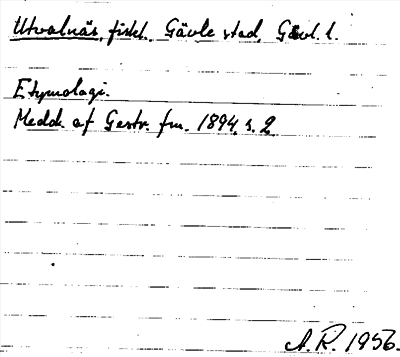 Utvalnäs, fiskl. Gävle stad, Gävl. l.
Etymologi.
Medd. af Gestr. fm. 1894, s. 2
A. R. 1956.